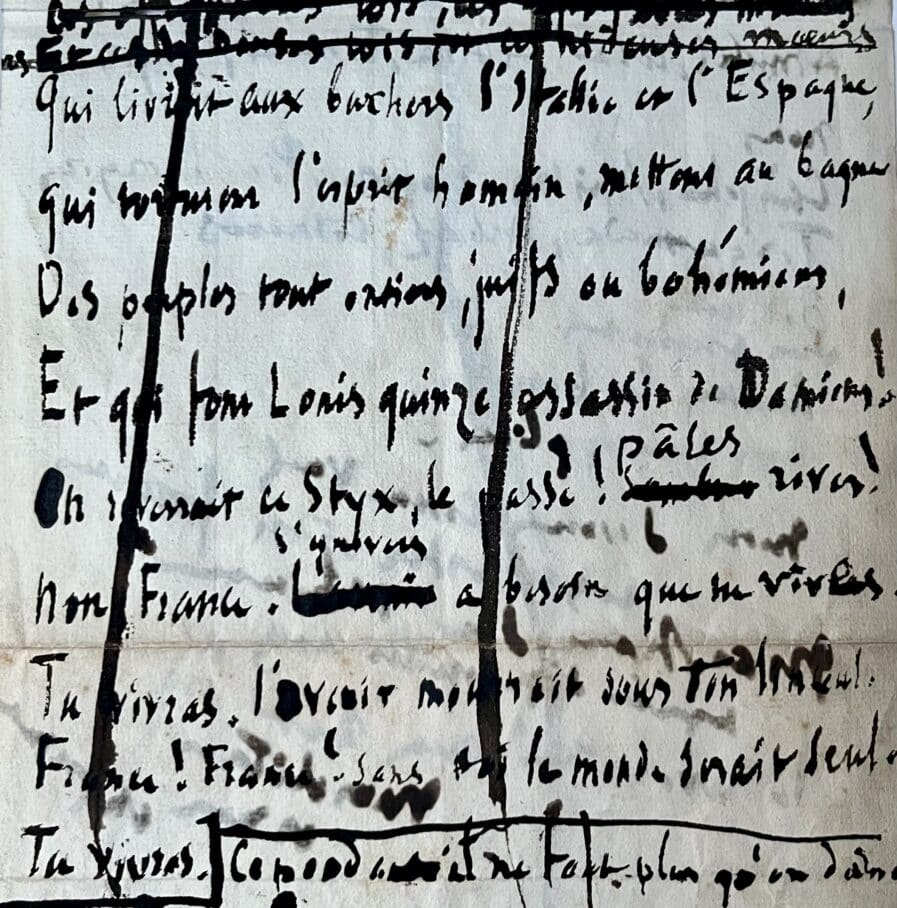 hideuses moeurs
Qui livrent aux buchers l'Italie et l'Espagne,
qui torturent l'esprit humain, mettent au bagne
Des peuples tout entiers, juifs ou bohémiens,
Et qui font Louis quinze assassin de Damiens!
pâles
On reverrait ce Styx, le passé! sombres rives!
l'univers
non France. a besoin que tu vives.
Tu vivras. l'avenir mourrait sous ton linceul.
France! France! sans toi le monde serait seul.
Tu vivras. Cependant il ne faut plus qu'on